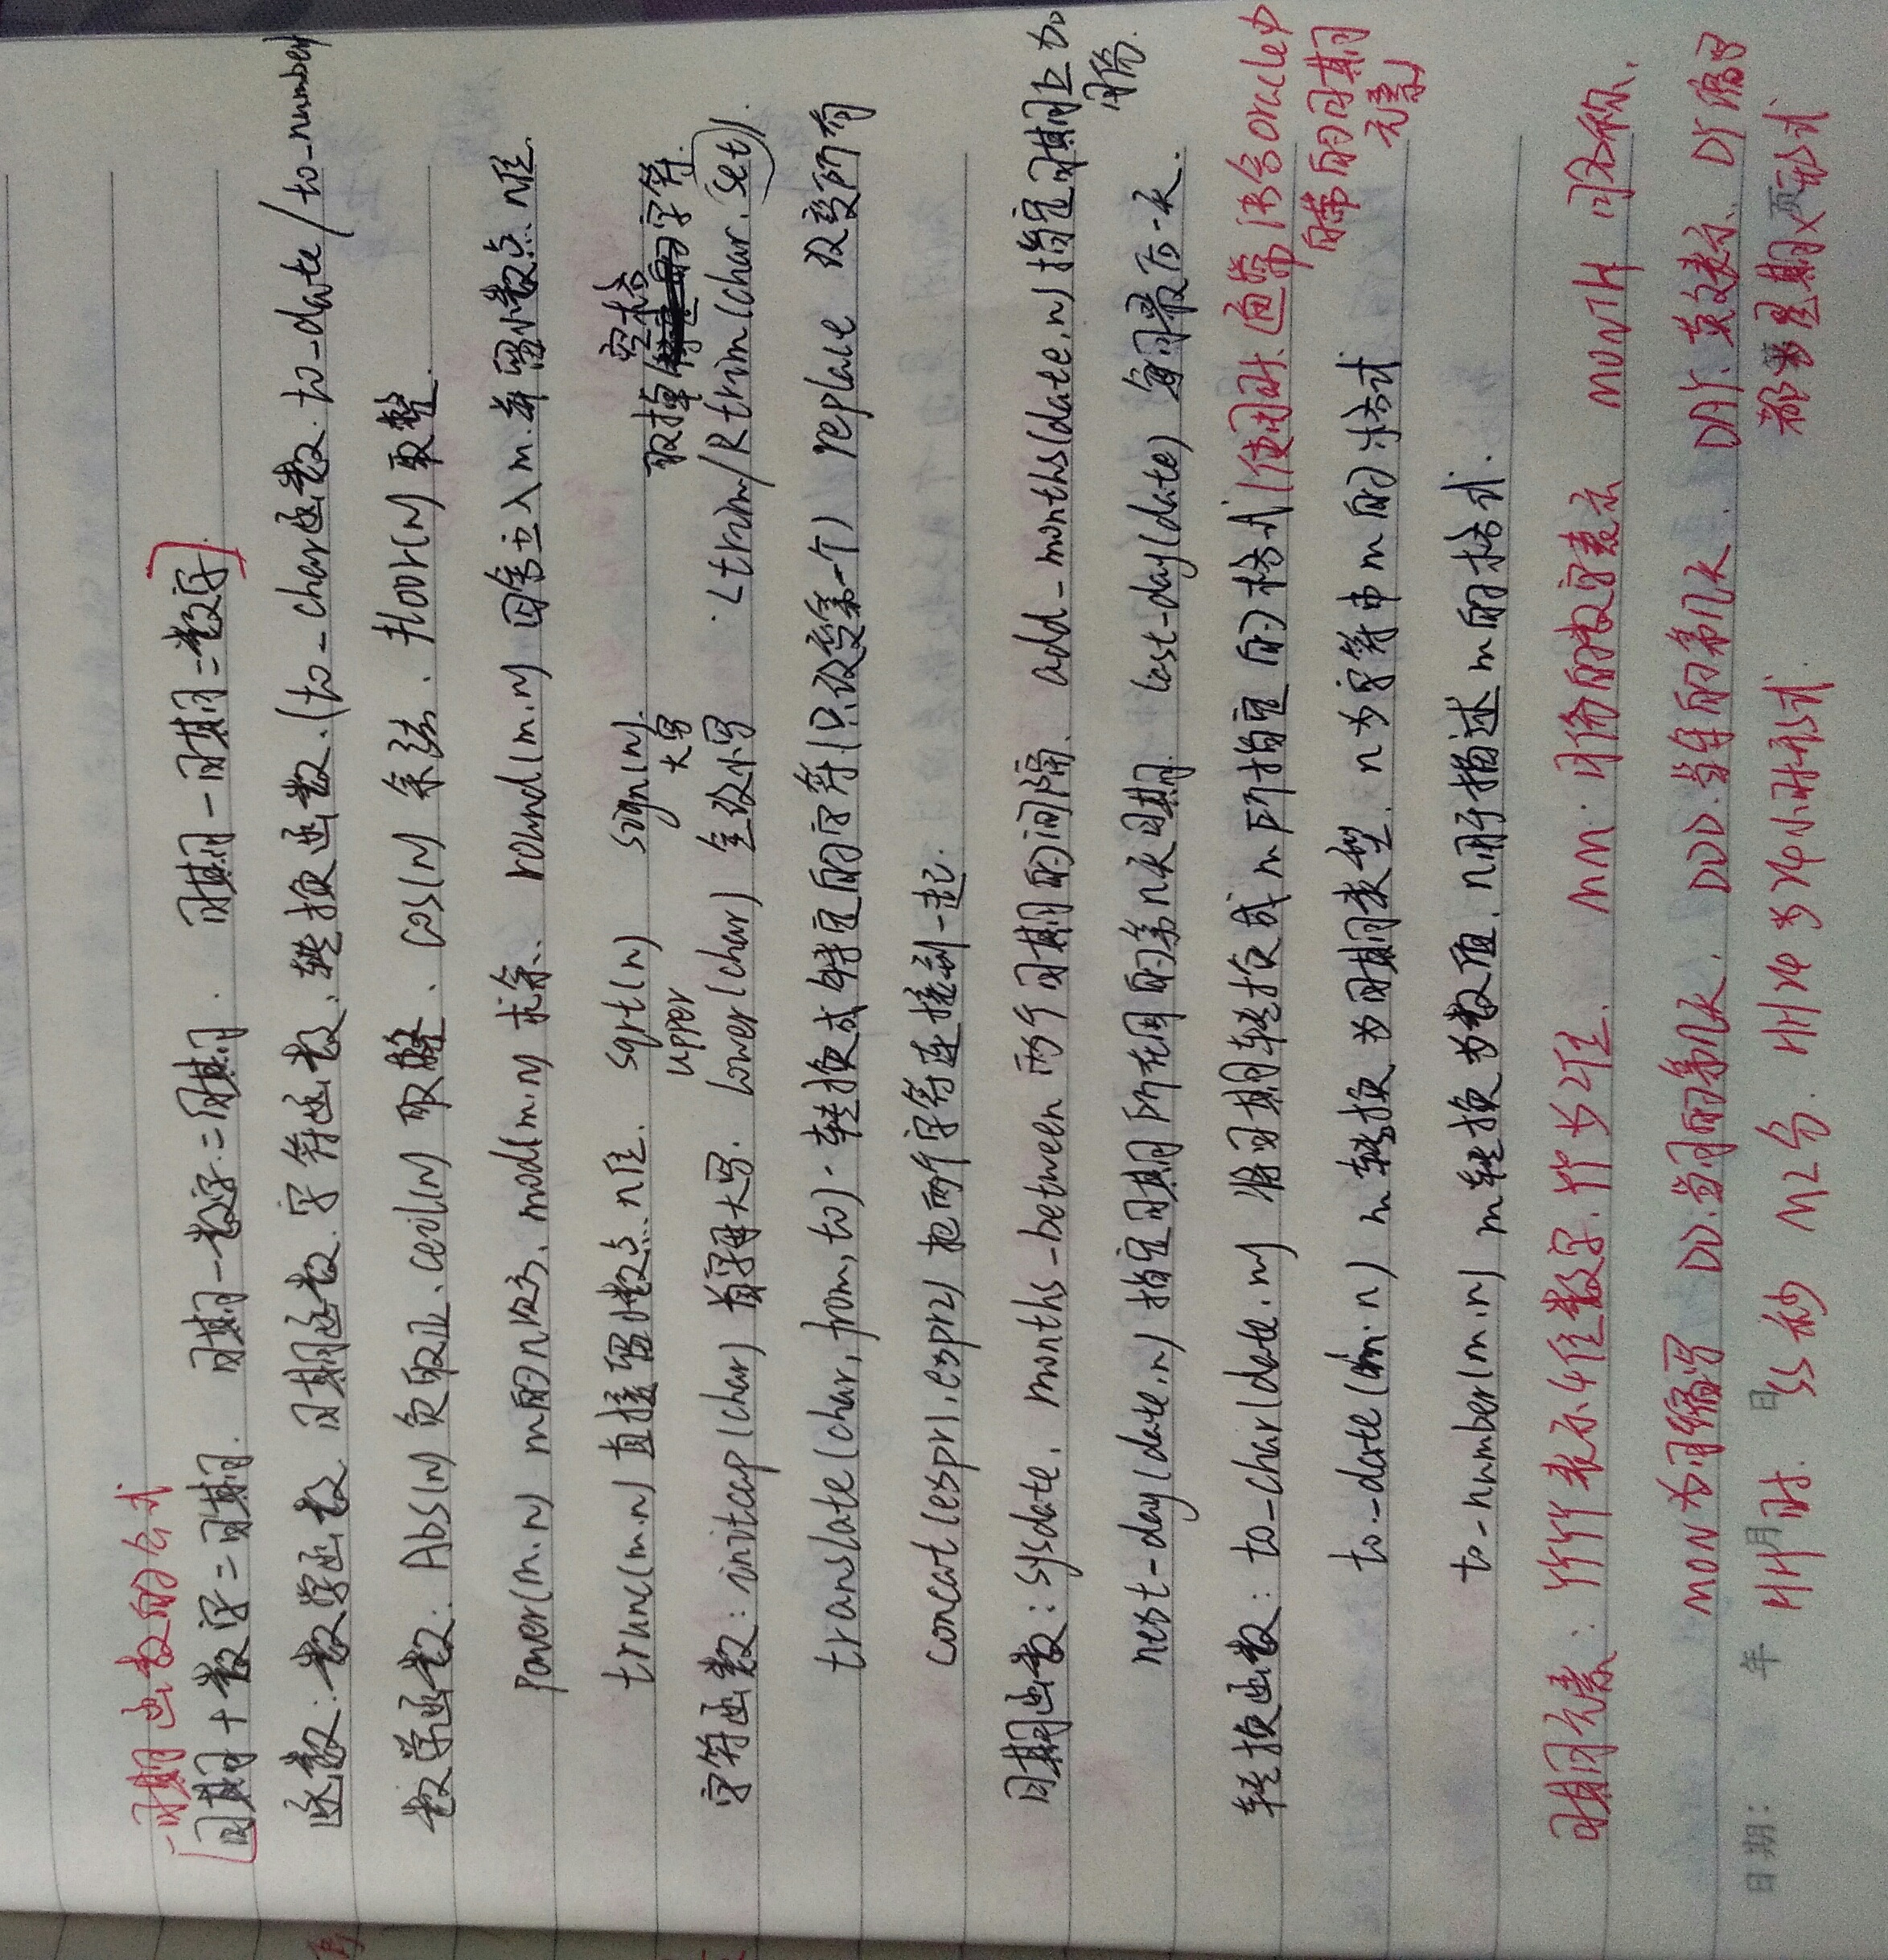 日期函数的公式
[日期+数字=日期. 日期-数字=日期. 日期-日期=数字].
函数:数学函数.日期函数.字符函数.转换函数.(to-char函数.to-date/to-number)
数学函数:Abs(n)负取正.ceil(n)取整.cos(n)余弦.floor(n)取整.
power(m.n) m的n次方.mod(m.n)求余. round(m.n)四舍五入m.并留小数点n位.
trunc(m.n)直接留小数点n位. sqrt(n) sign(n). 取掉空格的字符.
upper 大写
字符函数:initcap(char)首字母大写. lower(char)全设小写 . Ltrim/Rtrim(char.set).
translate(char,from,to).转换成特定的字符(只设变第一个) replace 改变所有
concat(espr1.espr2)把两个字符连接到一起.
日期函数:sysdate. months-between 两个日期的间隔. add-months(date.n)指定日期上加
月份.
nest-day(date.n)指定日期所在周的第n天日期. last-day(date)每月最后一天.
转换函数:to-char(date.m)将日期转换成m所指定的格式(使用时.通常语句含oracle中
自带的日期
元素)
to-date(m.n) m转换为日期类型.n为字符串m的格式
to-number(m.n) m转换为数值.n用于描述m的格式.
日期元素:YYYY表示4位数字.YY为2位. MM.月份的数字表示 MONTH 月名称.
MON为月缩写 DD.当月的第几天. DDD.当年的第几天. DAY.英文表示. DY缩写
都是星期X形式
HH时. SS秒 MI分. HH24为24小时形式.
日期: 年 月 日 页